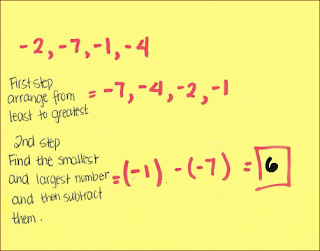 -2, -7, -1, -4
First step
arrange from
least to greatest
= -7, -4, -2, -1
2nd step
Find the smallest
and largest number
and then subtract
them.
= (-1) - (-7) = 6